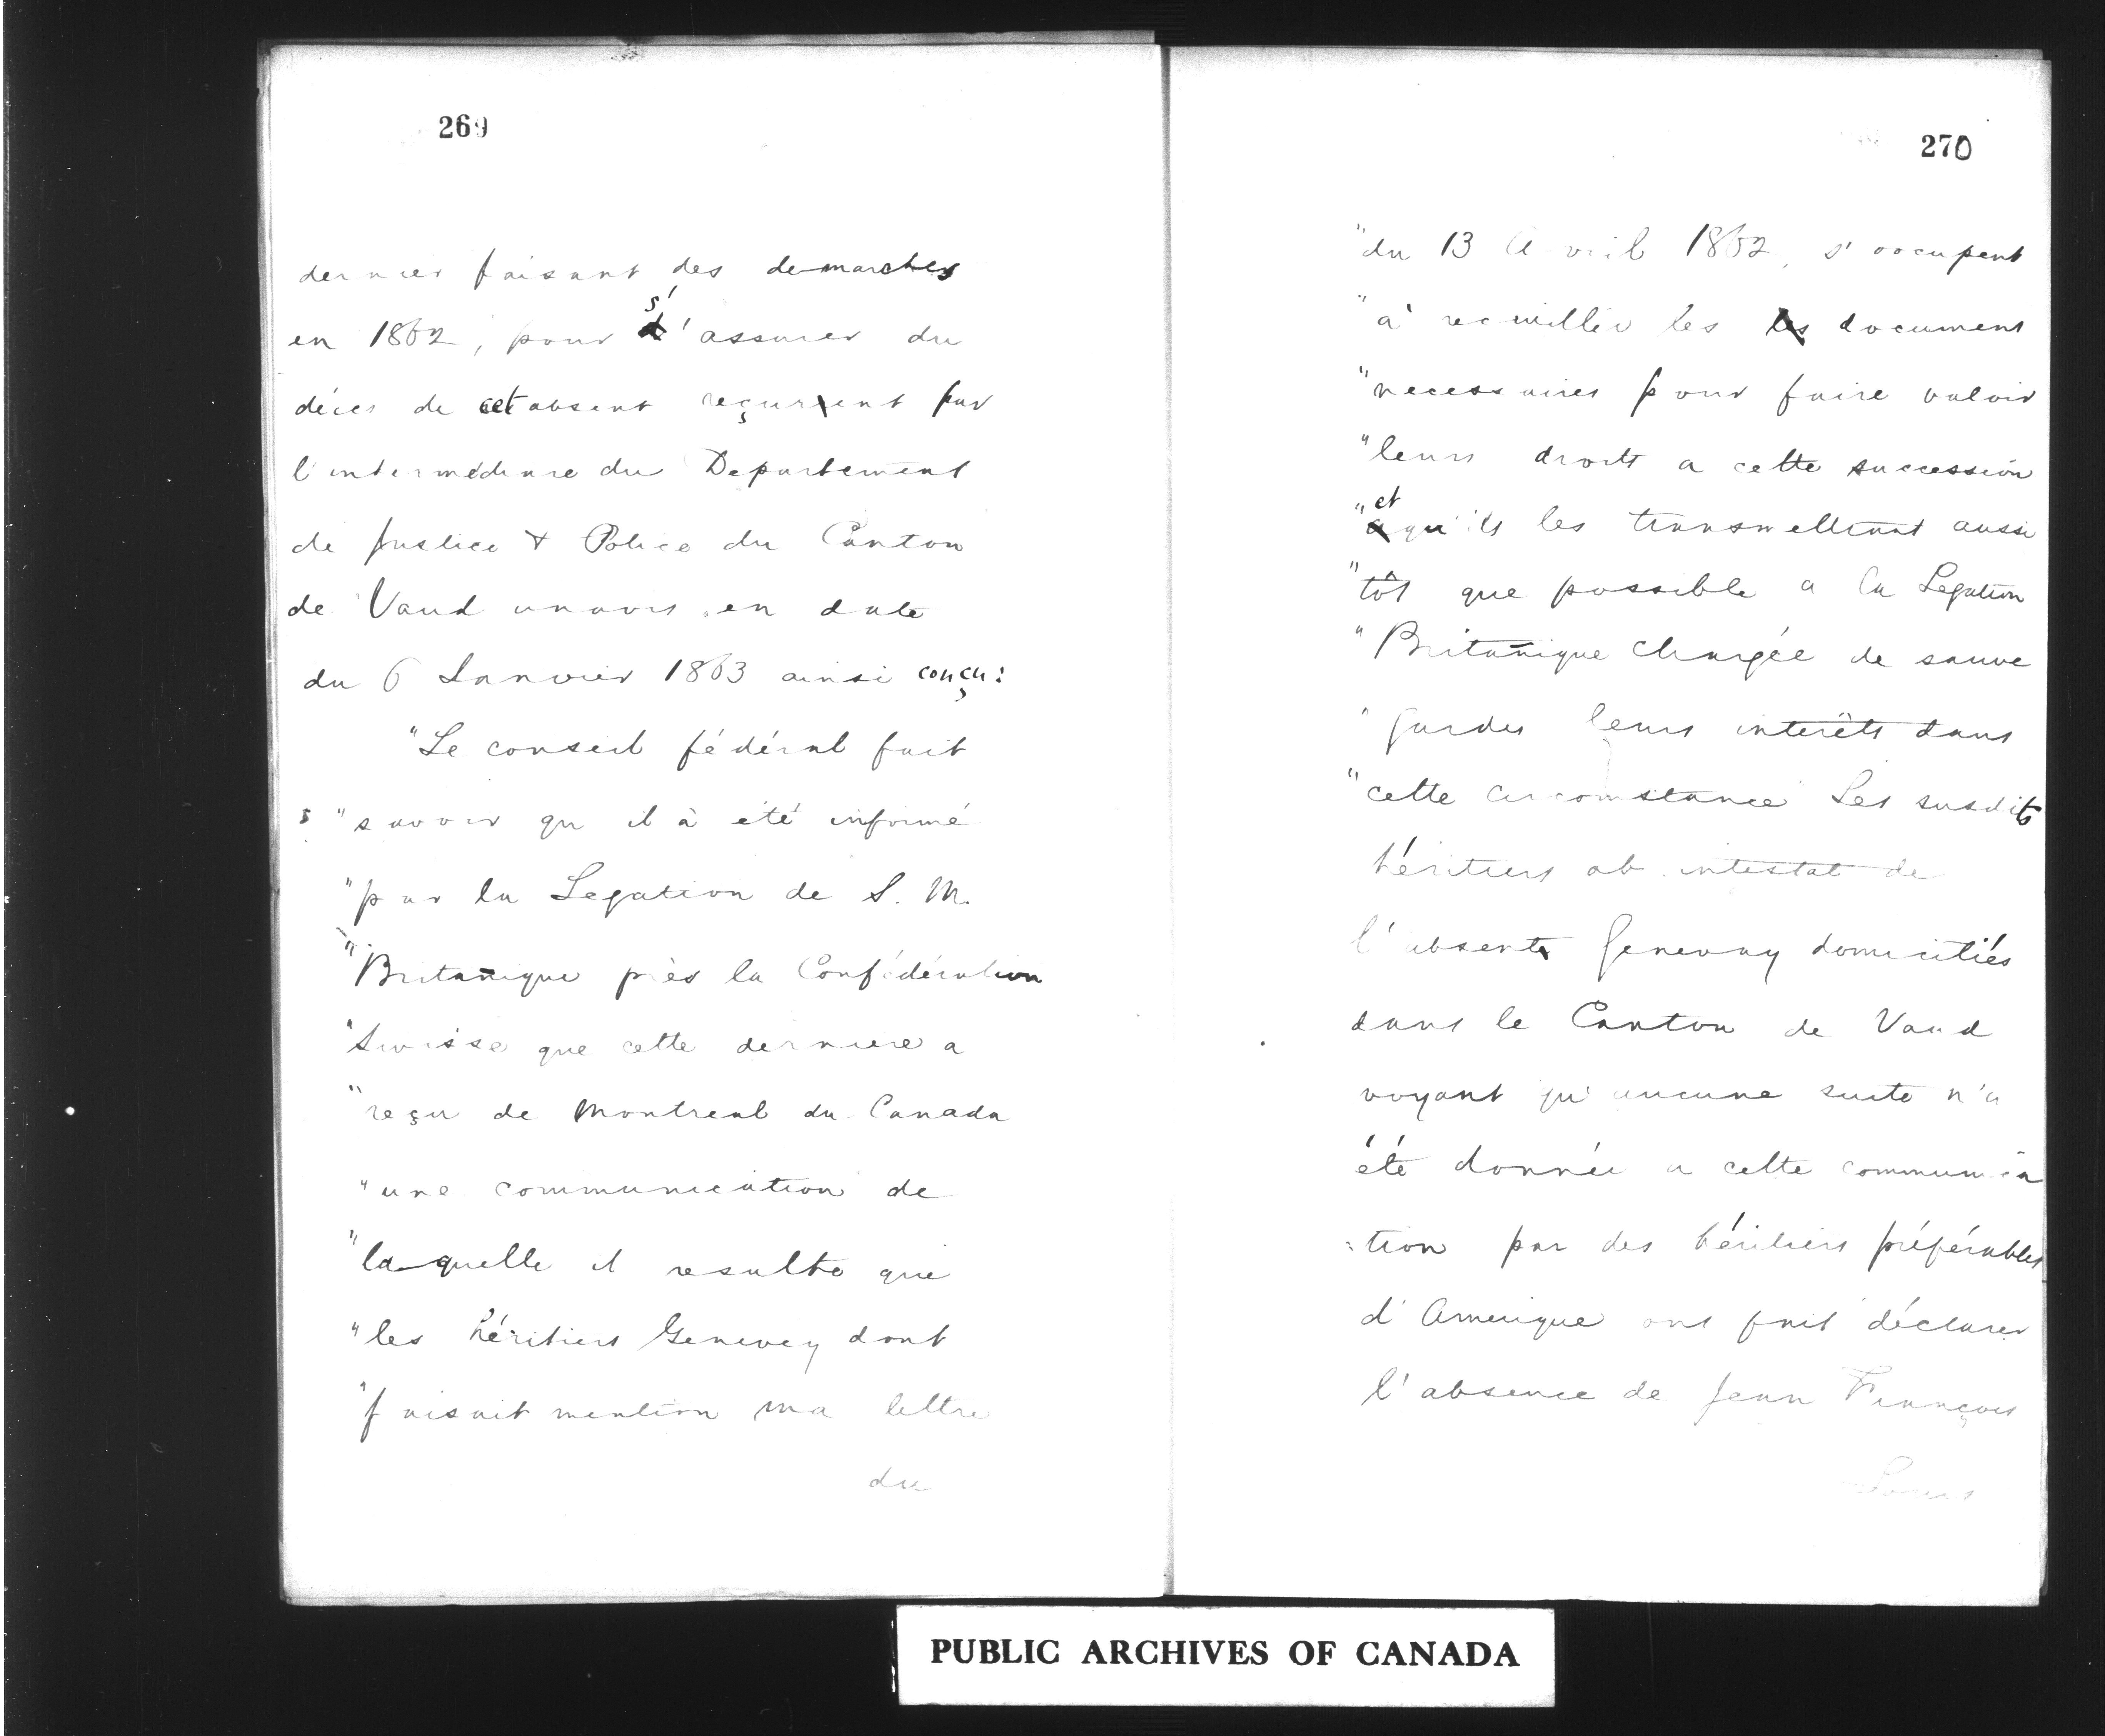 269
dernier faisant des demarches
en 1862, pour s'assurer du
décès de cet absent reçurent par
l'intermédiare du Departement
de Justice & Police du Canton
de Vaud un avis en date
du 6 Janvier 1863 ainsi conçu:
"Le conseil fédéral fait
"savoir qu il à été informé
"par la Legation de S. M.
"Britañique près la Confédération
"Suisse que cette derniere a
"reçu de Montreal du Canada
"une communication de
"laquelle il resulte que
"les héritiers Genevey dont
"faisait mention ma lettre
du
270
"du 13 Avril 1862, s'occupent
"à recuillir les document
"necessaires pour faire valoir
"leurs droits a cette succession
"et qu'ils les transmettront aussi
"tôt que possible a la Legation
"Britañique chargée de sauve
"garder leurs interêts dans
"cette circomstance Les susdits
héritiers ab intestat de
l'absent Genevay domiciliés
dans le Canton de Vaud
voyant qu'aucune suite n'a
été donnée a cette communica
tion par des héritiers préférables
d'Amerique ont fait déclarer
l'absence de Jean François
Louis
PUBLIC ARCHIVES OF CANADA